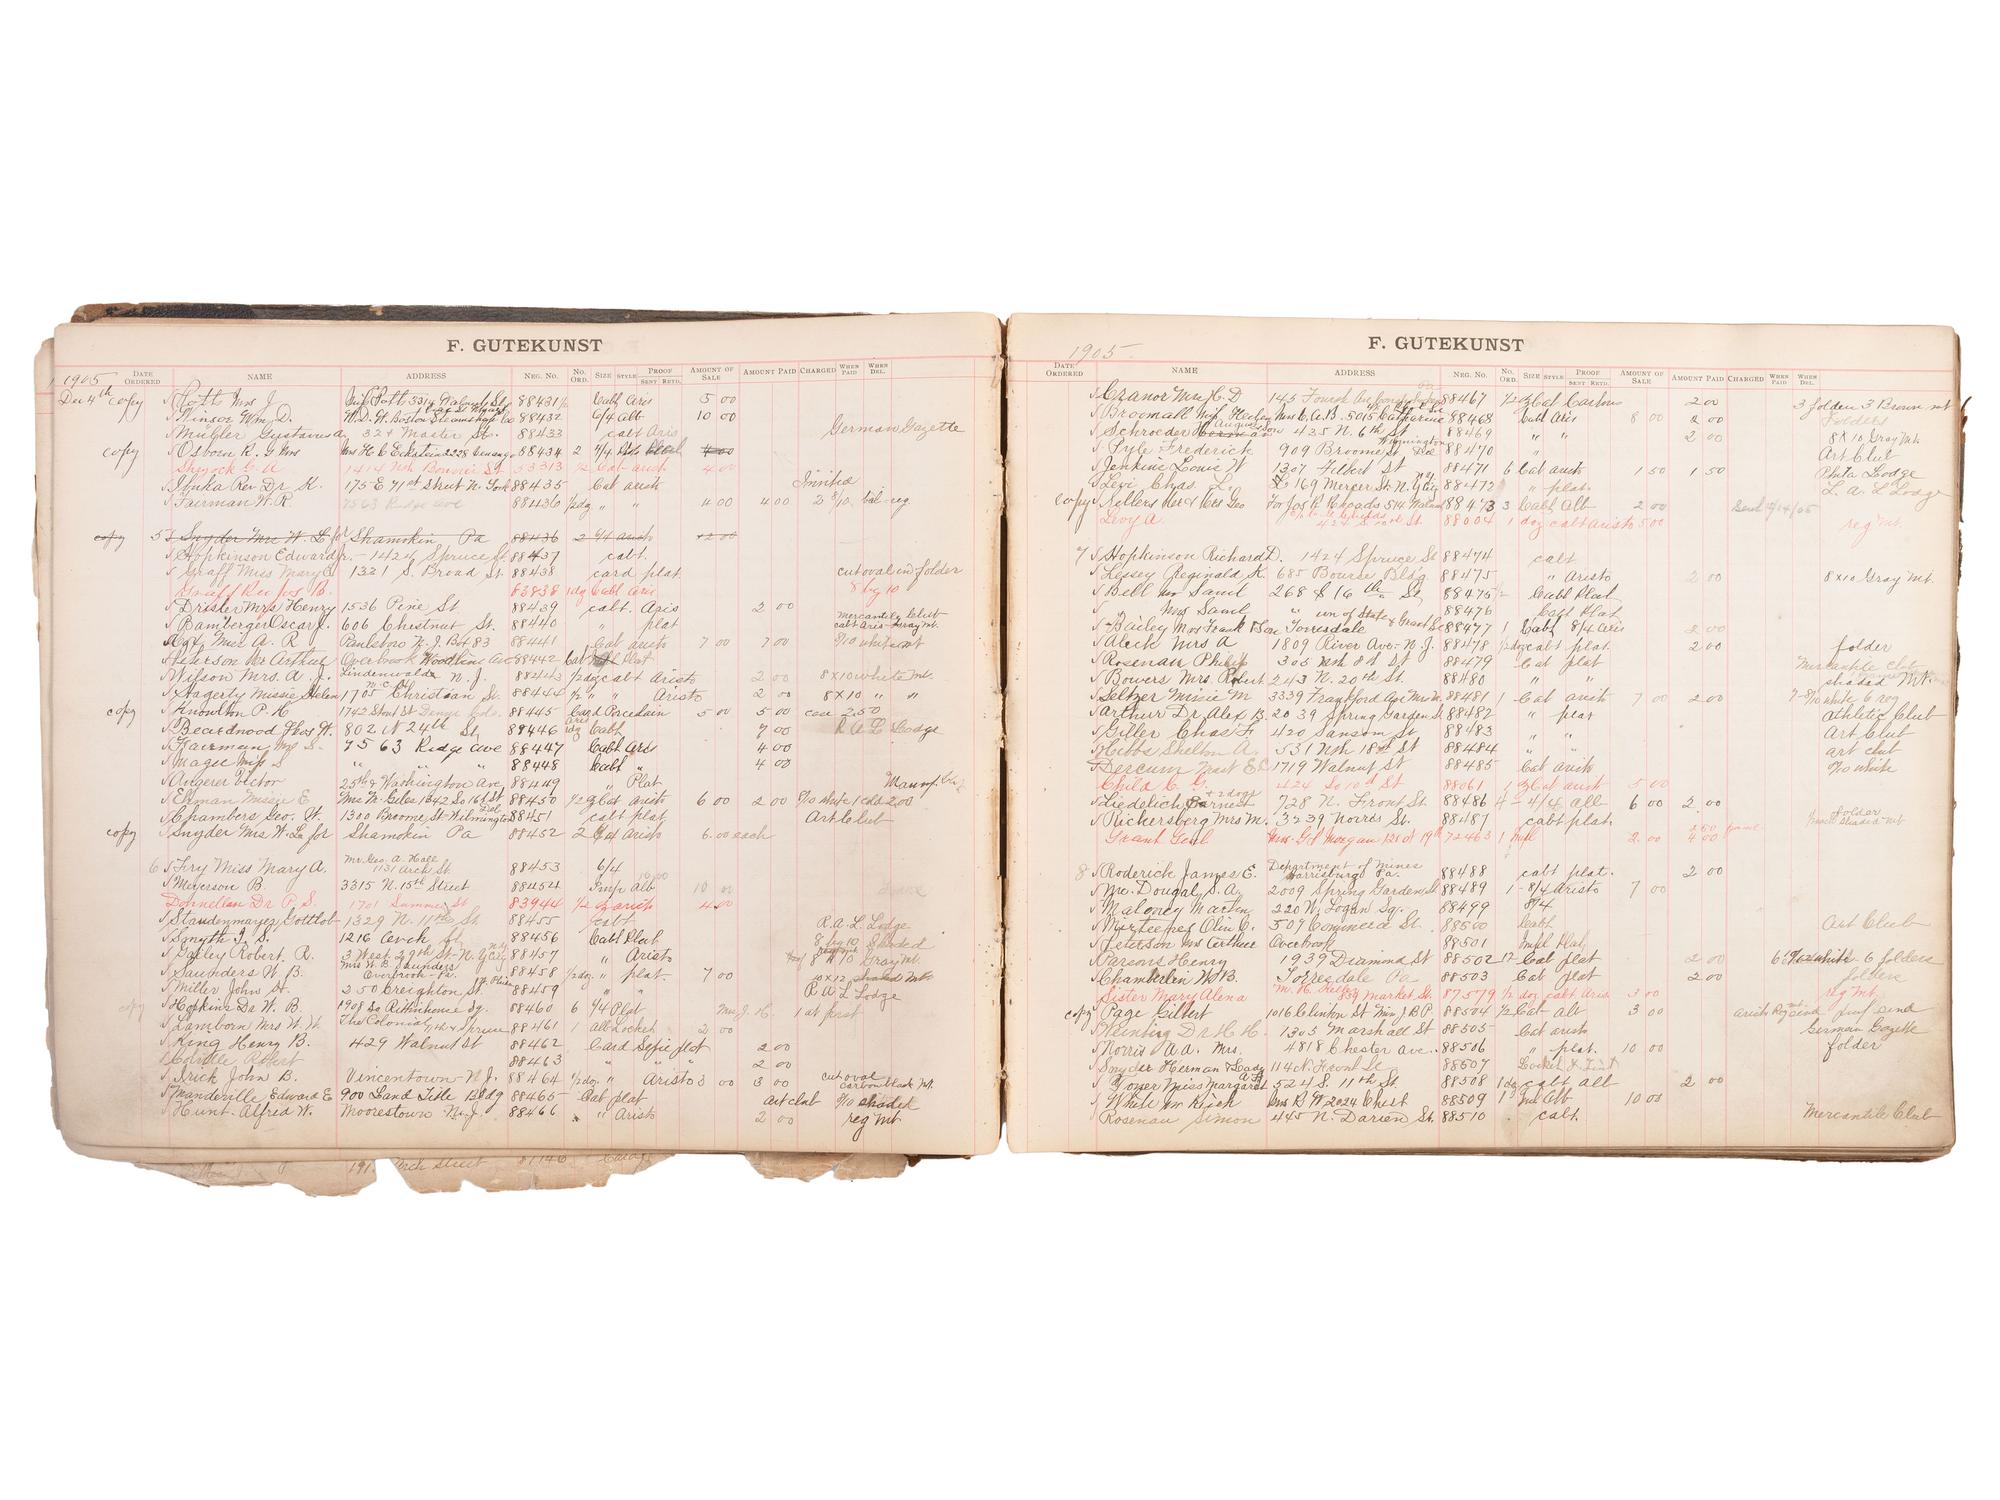 F. GUTEKUNST
1905 DATE ORDERED NAME ADDRESS NEG. NO. NO. ORD. SIZE STYLE PROOF SENT RETD. AMOUNT OF SALE AMOUNT PAID CHARGED WHEN PAID WHEN DEL.
Dec 4th copy Poth Mrs J 88431 Cabt Aris 5 00
Winsor Wm. D. W. D. W. Boston Steamship Co 88432 6/4 Alb 10 00
Mubler Gustavus A. 324 Master St. 88433 cabt Aris German Gazette
copy Osborn R. G Mrs Mrs H C Eckstein 2228 88434 2 4/4
1414 Nth Bouvier St 53313 1/2 Cat arist 4 00
Ibuka Rev Dr K. 175 E 71st Street N. York 88435 Cat aristo Invited
Fairman W. R. 7563 Ridge ave 88436 1/2 dz " " 4 00 4 00 2 8/10 bal-reg
copy 5 Snyder Mrs W. L for Shamokin, Pa 88436 2 6/4 aristo 12 00
Hopkinson Edward Jr. - 1424 Spruce St 88437 cabt.
Graff Miss Mary E 1321 S. Broad St. 88438 card plat. cut oval in folder
Graff Rev Jos B. 83838 1 dz Cabt Aris 8 by 10
Drisler Mrs Henry 1536 Pine St 88439 cabt. Aris 2 00
Bamberger Oscar J. 606 Chestnut St. 88440 " plat Mercantile Club cabt aris - Gray Mt.
Miss A. R Paulsboro N. J. Box 83 88441 Cat aristo 7 00 7 00 8/10 white mt
Peterson Mr Arthur Overbrook Woodbine Ave 88442 Cab Plat
Wilson Mrs. A. J. Lindenwalde N. J. 88443 1/2 dz cabt Aristo 2 00 8x10 white Mt.
Hagerty Missie Helen 1705 Christian St. 88444 1/2 " " Aristo 2 00 8x10 " "
copy Knowlton P. H 1742 Stout St Denver Colo. 88445 Card Porcelain 5 00 5 00 case 2.50
Beardwood Thos W. 802 N 24th St, 89446 dz Cabt 7 00 R A L Lodge
Fairman Mrs S. 7563 Ridge ave 88447 Cabt Aris 4 00
Magee Miss S " " " 88448 Cabt " 4 00
Angerer Victor 25th & Washington Ave 88449 " Plat Manuf. Club
Ehman Missie E. Mrs M. Giles 1342 So 16th St 88450 1/2 dz Cat aristo 6 00 2 00 8/10 white 1 chd 2.00
Chambers Geo. W. 1300 Broome St Wilmington Del 88451 cabt plat. Art Club
copy Snyder Mrs W. L. for Shamokin Pa 88452 2 Cat Aristo 6.00 each
6 Fry Miss Mary A. Mr. Geo. A. Hall 1131 Arch St. 88453 6/4
Meyerson B. 3315 N. 15th Street 88454 Imp Alb 10 00
Donnellan Dr P. S. 1701 Summer St 83944 1/2 dz arist 4 00
Staudenmayer Gottlob 1329 N. 11th St. 88455 cabt
Smyth I. S. 1216 Arch St 88456 Cabt Plat R. A. L. Lodge
Dailey Robert R. 3 West 29th St. N. Y City 88457 " Aristo 8 by 10 Shaded
Saunders W. B. Mrs W. B. Saunders Overbrook Pa. 88458 1/2 dz. " plat. 7 00 8 x 10 Gray Mt.
Miller John A. 250 Creighton St W. Phila 88459 " " 10x12 shaded Mt R A L Lodge
copy Hopkins Dr W. B. 1908 So Rittenhouse Sq. 88460 6 6/4 Plat Mrs J. H. 1 at first
Lamborn Mrs W. W. The Colonial 11th & Spruce 88461 1 all Locket 2 00
King Henry B. 429 Walnut St 88462 Card Sepie plat 2 00
Colville Robert 88463 " " " 2 00
Irick John B. Vincentown N. J. 88464 1/2 dz. " Aristo 3 00 3 00 cut oval carbon black Mt.
Mandeville Edward E 900 Land Title Bldg 88465 Cat plat Art club 8/10 shaded
Hunt Alfred W. Moorestown N. J. 88466 " Aristo 2 00 reg Mt
191. Arch Street 87146
1905
F. GUTEKUNST
DATE ORDERED NAME ADDRESS NEG. NO. NO. ORD. SIZE STYLE PROOF SENT RETD. AMOUNT OF SALE AMOUNT PAID CHARGED WHEN PAID WHEN DEL.
Cranor Mrs C. D 145 88467 1/2 dz Cat Carbon 2 00 3 folder 3 Brown mt
Broomall Miss Mrs C. A. B. 5015 Catharine 88468 Cabt Aris 8 00 2 00 Folders
Schroeder 435 N. 6th St 88469 " " 2 00 8 x 10 Gray Mt.
Pyle Frederick 909 Broome St. Wilmington Del 88470 Art Club
Jenkins Louis W 1307 Filbert St 88471 6 Cat aristo 1 50 1 50 Phila Lodge
Levi Chas. L. 169 Mercer St. N. Y City 88472 " plat. L. A. L Lodge
copy Sellers Mr & Mrs Geo For Jos R Rhoads 514 Walnut 88473 3 Cabt Alb 2 00 Sent 12/14/05
Levy A. 424 S 20th St. 88004 1 doz cabt aristo 5 00 reg Mt.
7 Hopkinson Richard D. 1424 Spruce St 88474 cabt
Lessey Reginald K. 685 Bourse Bldg 88475 " Aristo 2 00 8x10 Gray Mt.
Bell Mr Saml 268 S 16th St. 88475 1/2 Cabt Plat
" Mrs Saml " " 88476 Cabt Plat
Bailey Mrs Frank & Son Torresdale 88477 1 Cabt 8/4 Aris 2 00
Aleck Mrs A 1809 River Ave. N. J. 88478 1/2 doz cabt plat. 2 00 folder
Rosenau Philip 305 Nth 8th St 88479 Cat plat Mercantile club
Bowers Mrs Robert 243 N. 20th St. 88480 " " shaded Mt.
Seltzer Missie M 3339 Frankford Ave 88481 1 Cat aristo 7 00 2 00 7-8/10 white 6 reg
Arthur Dr Alex B. 2039 Spring Garden St 88482 " plat Athletic Club
Giller Chas F. 420 Sansom St 88483 " " Art Club
Gibbs Shelton A. 531 Nth 18th St 88484 " " art club
Dercum Mast E. C 1719 Walnut St 88485 Cat aristo 8/10 white
Child C. G. 424 So 10th St 88061 1 dz Cat aristo 5 00
Liedelich Earnest + 2 dogs 728 N. Front St. 88486 4 - 4/4 all 6 00 2 00
Rickersberg Mrs M. 3239 Norris St. 88487 cabt plat. folder
Grant Genl Mrs. Gd Morgan 120 So 19th 72463 1 Impl 2 00 4 00
8 Roderick James E. Department of Mines Harrisburg Pa. 88488 cabt plat. 2 00
McDougal S. A. 2009 Spring Garden St 88489 1 - 8/4 Aristo 7 00
Maloney Martin 220 W. Logan Sq. 88499 8/4
Olin C. 509 Commerce St. 88500 Cabt Art Club
Peterson Mrs Arthur Overbrook 88501 Impl Plat
Parsons Henry 1939 Diamond St 88502 12 Cat plat 2 00 6 8/10 white 6 folders
Chamberlin W. B. Torresdale Pa 88503 Cat plat 2 00 folders
Sister Mary Alena 834 Market St. 87579 1/2 doz cabt Aris 3 00 reg Mt.
copy Page Gilbert 1016 Clinton St Mrs J B P 88504 1/2 Cat alb 3 00
Keinting Dr H. H. 1305 Marshall St 88505 Cat aristo German Gazette
Norris A. A. Mrs. 4818 Chester Ave. 88506 " plat. 10 00 folder
Snyder Herman & Lady 114 N. Front St 88507 Locket
Poyer Miss Margaret 524 S. 11th St. 88508 1 dz cabt alb 2 00
White Mr Rich Mrs R. W 2024 Chest 88509 1 Impl Alb 10 00
Rosenau Simon 445 N. Darien St. 88510 cabt. Mercantile Club